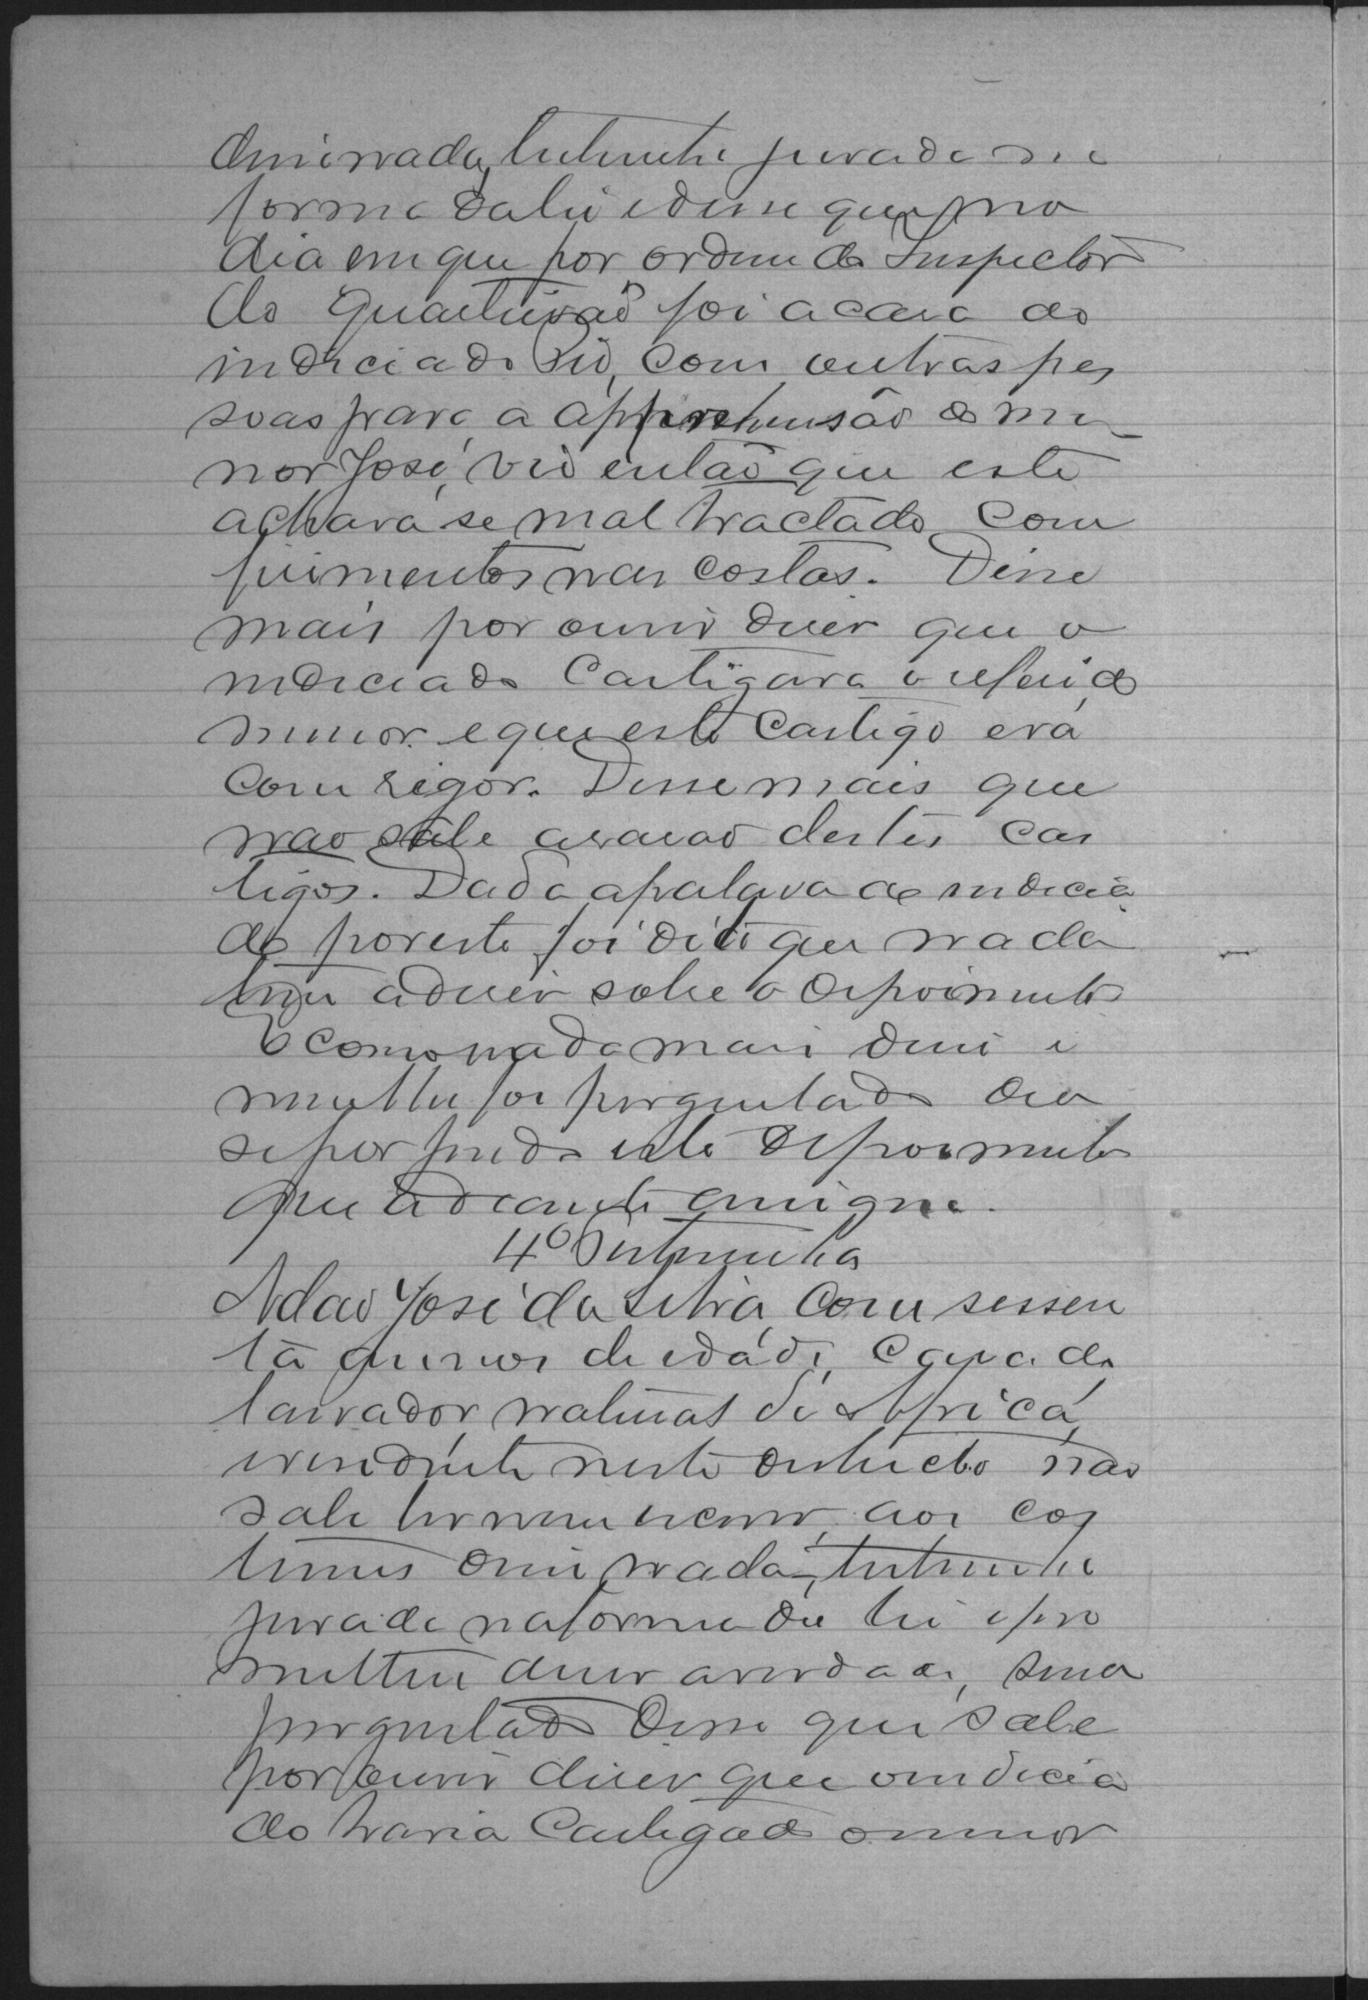 disse nada, testemunha jurada na
forma da lei e disse que no
dia em que por ordem do Inspector
do quarteirão foi a casa do
indiciado Pio, com outras pes
soas para a apprehensão do me
nor José, vio então que este
achava se mal tractado com
firimentos nas costas. Disse
mais por ouvir diser que o
indiciado Castigava o referido
menor e que este Castigo era
com rigor. Disse mais que
não sabe a rasão destes cas
tigos. Dada a palavra ao indicia
do por este foi dito que nada
tem a diser sobre o depoimento
E como nada mais disse e
nem lhe foi perguntado deu
se por findo este depoimento
que adeante assigna.
4º Testemunha
Adão José da Silva, com sessen
ta annos de idade, casado
lavrador, natural de Africa,
e residente neste districto não
sabe ler nem escrever, aos cos
tumes disse nada, testemunha
jurada na forma da lei e pro
metteu diser a verdade, sendo
perguntado Disse que sabe
por ouvir diser que o indicia
do havia Castigado o menor